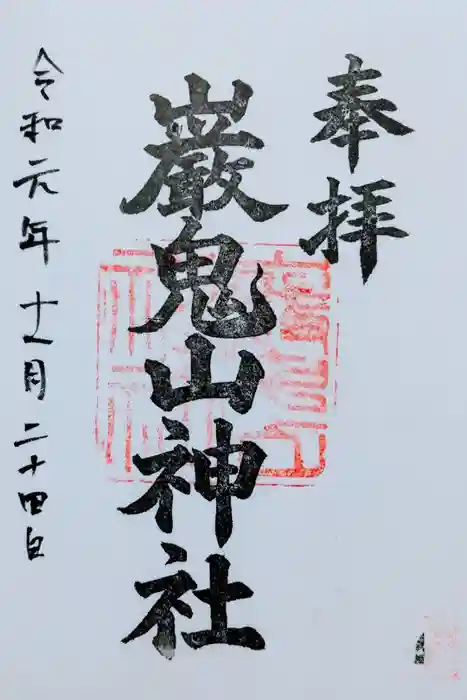 奉拝
巌鬼山神社
令和元年十一月二十四日